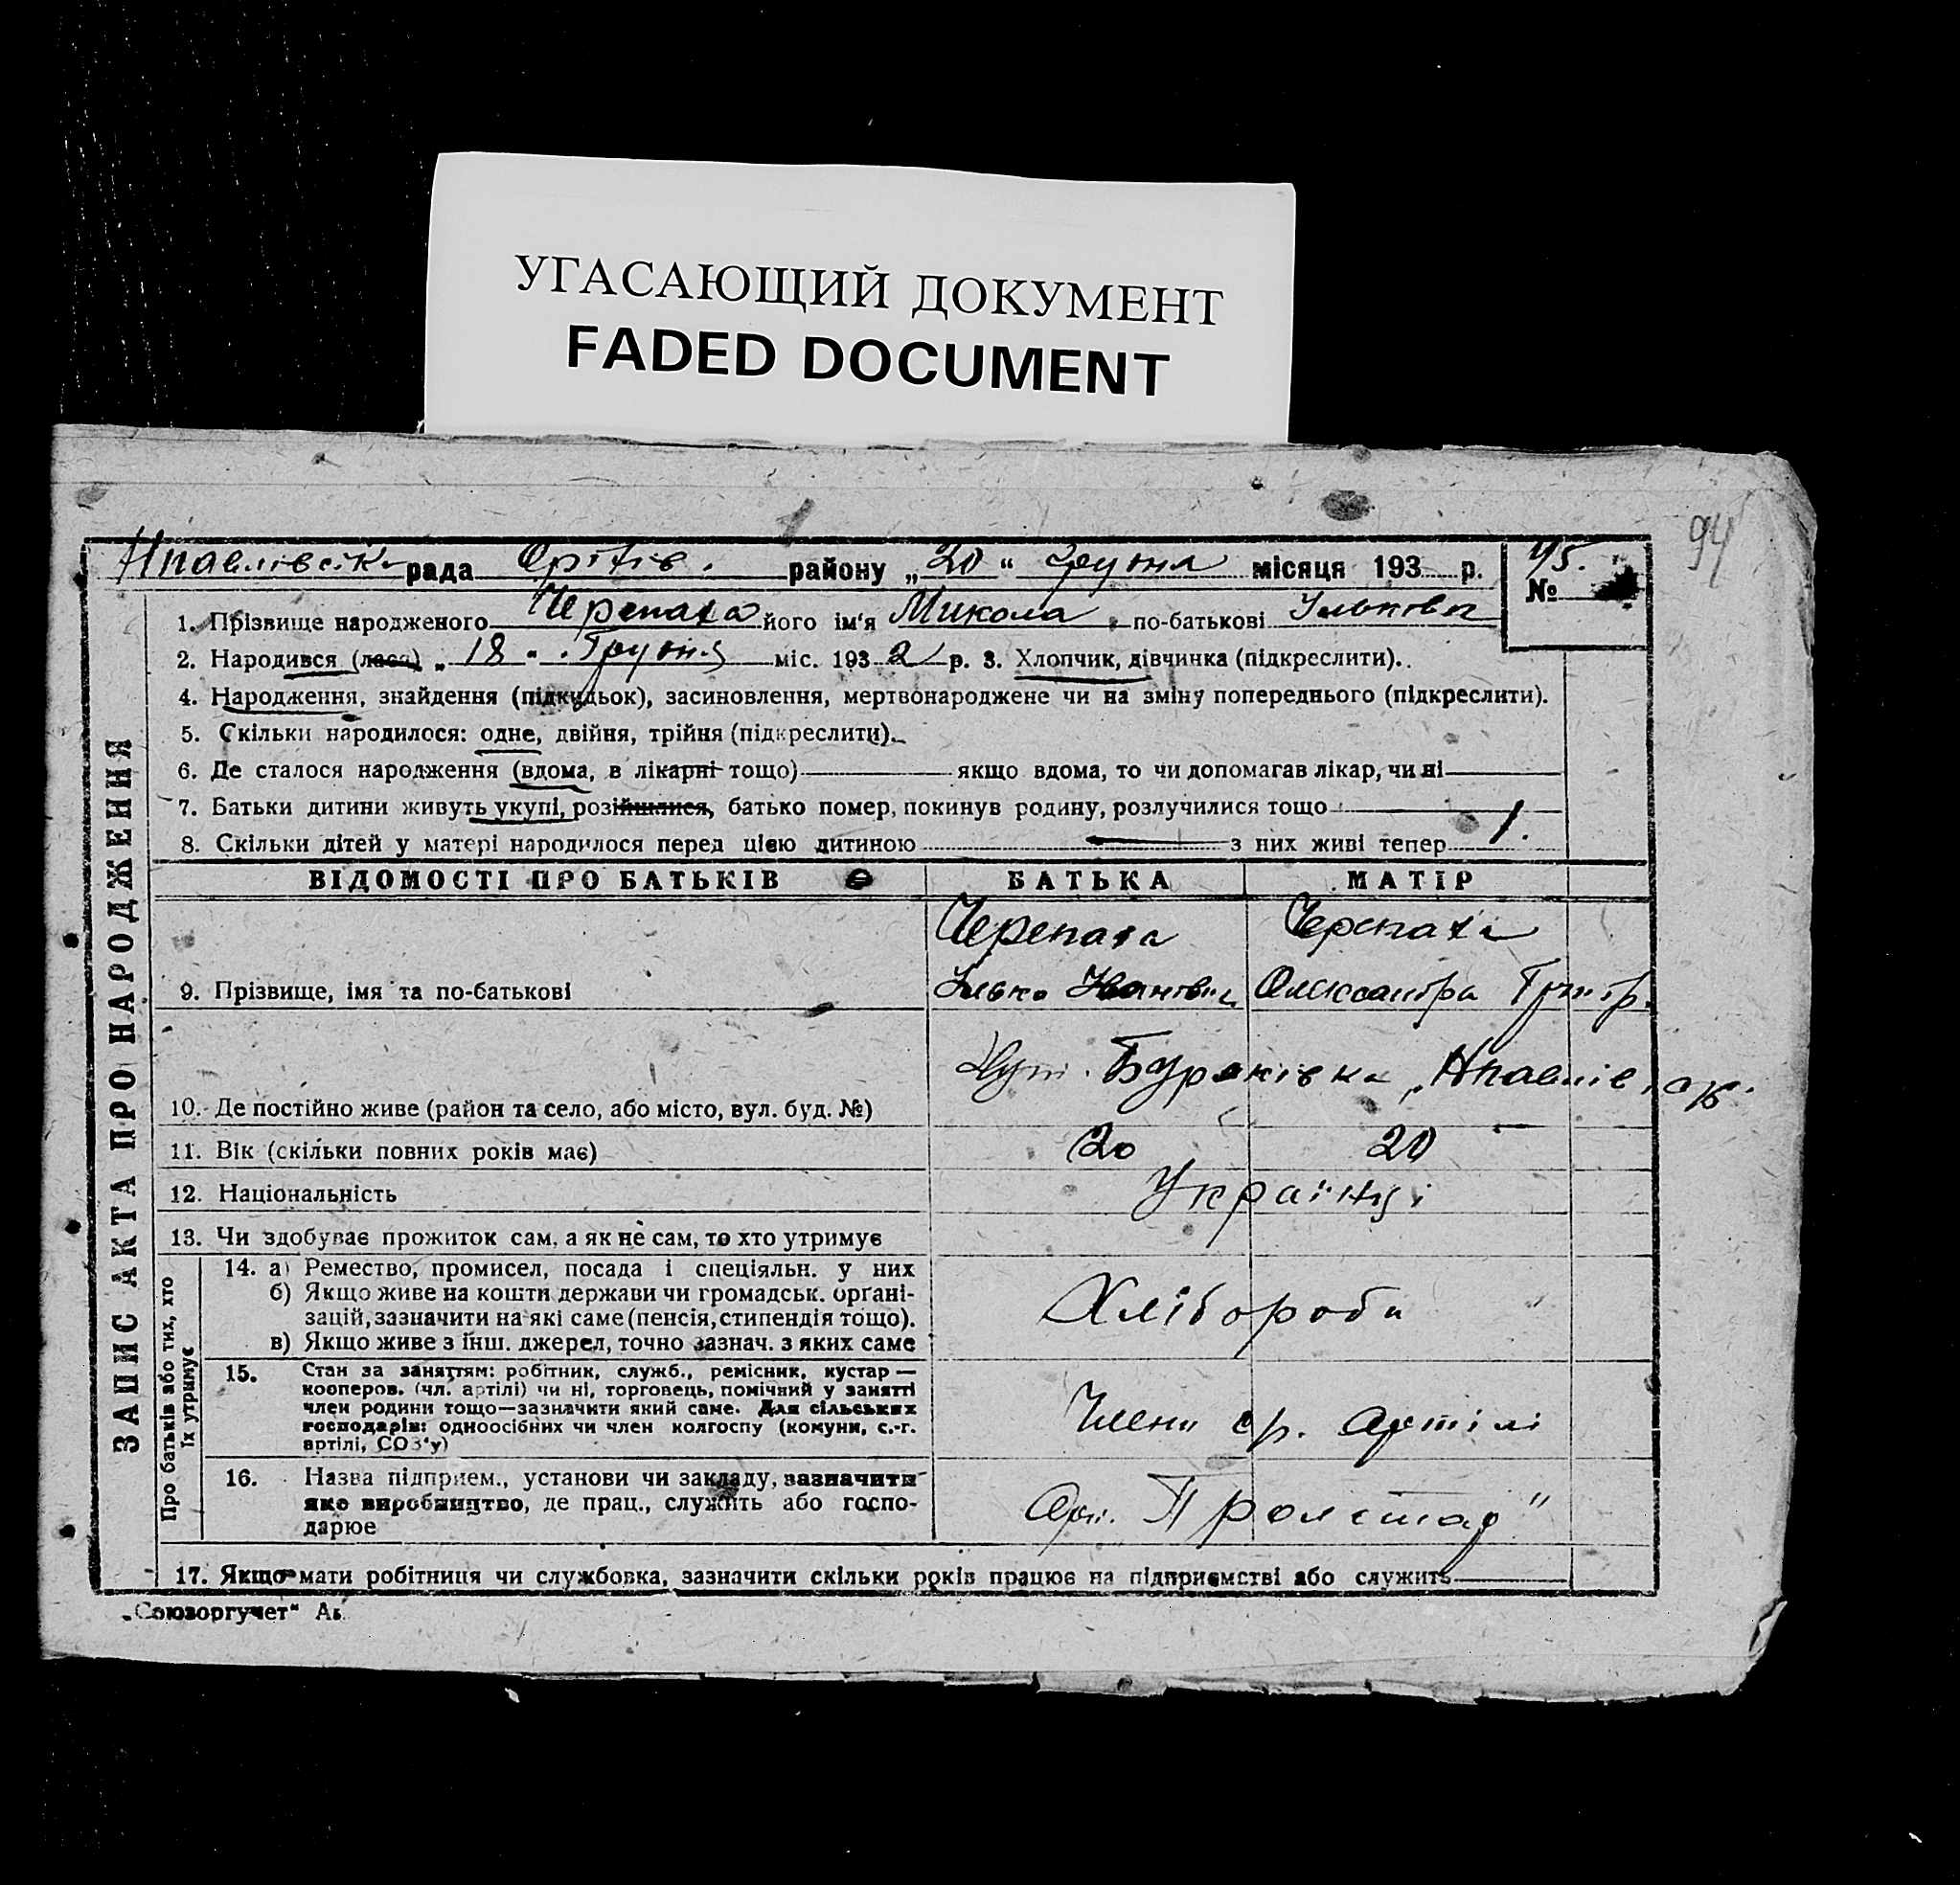 УГАСАЮЩИЙ ДОКУМЕНТ
FADED DOCUMENT
94
Нпавлівськ рада Оріхів. району „20“ грудня місяця 193 р.
95.
№
1. Прізвище народженого Черепаха його ім'я Микола по-батькові Ількович
2. Народився (лася) „18“ Грудня міс. 1932 р. 3. Хлопчик, дівчинка (підкреслити).
4. Народження, знайдення (підкидьок), засиновлення, мертвонароджене чи на зміну попереднього (підкреслити).
5. Скільки народилося: одне, двійня, трійня (підкреслити).
6. Де сталося народження (вдома, в лікарні тощо) якщо вдома, то чи допомагав лікар, чи ні
7. Батьки дитини живуть укупі, розійшлися, батько помер, покинув родину, розлучилися тощо
8. Скільки дітей у матері народилося перед цією дитиною — з них живі тепер 1.
ЗАПИС АКТА ПРО НАРОДЖЕННЯ
ВІДОМОСТІ ПРО БАТЬКІВ БАТЬКА МАТІР
Черепаха Черепаха
9. Прізвище, імя та по-батькові Ілько Іванович Олександра Григор.
Хут. Буряківка, Нпавлів. с/р.
10. Де постійно живе (район та село, або місто, вул. буд. №)
11. Вік (скільки повних років має) 20 20
12. Національність Українці
13. Чи здобуває прожиток сам, а як не сам, то хто утримує
Про батьків або тих, хто
їх утримує
14. а) Ремество, промисел, посада і спеціяльн. у них
б) Якщо живе на кошти держави чи громадськ. органі-
зацій, зазначити на які саме (пенсія, стипендія тощо).
в) Якщо живе з інш. джерел, точно зазнач. з яких саме
Хлібороби
15. Стан за заняттям: робітник, служб., ремісник, кустар —
кооперов. (чл. артілі) чи ні, торговець, помічний у занятті
член родини тощо—зазначити який саме. Для сільських
господарів: одноосібних чи член колгоспу (комуни, с.-г.
артілі, СОЗ'у)
Члени ср. артілі
16. Назва підприєм., установи чи закладу, зазначити
яке виробництво, де прац., служить або госпо-
дарює
Арт. Пролетар"
17. Якщо мати робітниця чи службовка, зазначити скільки років працює на підприємстві або служить
„Союзоргучет“